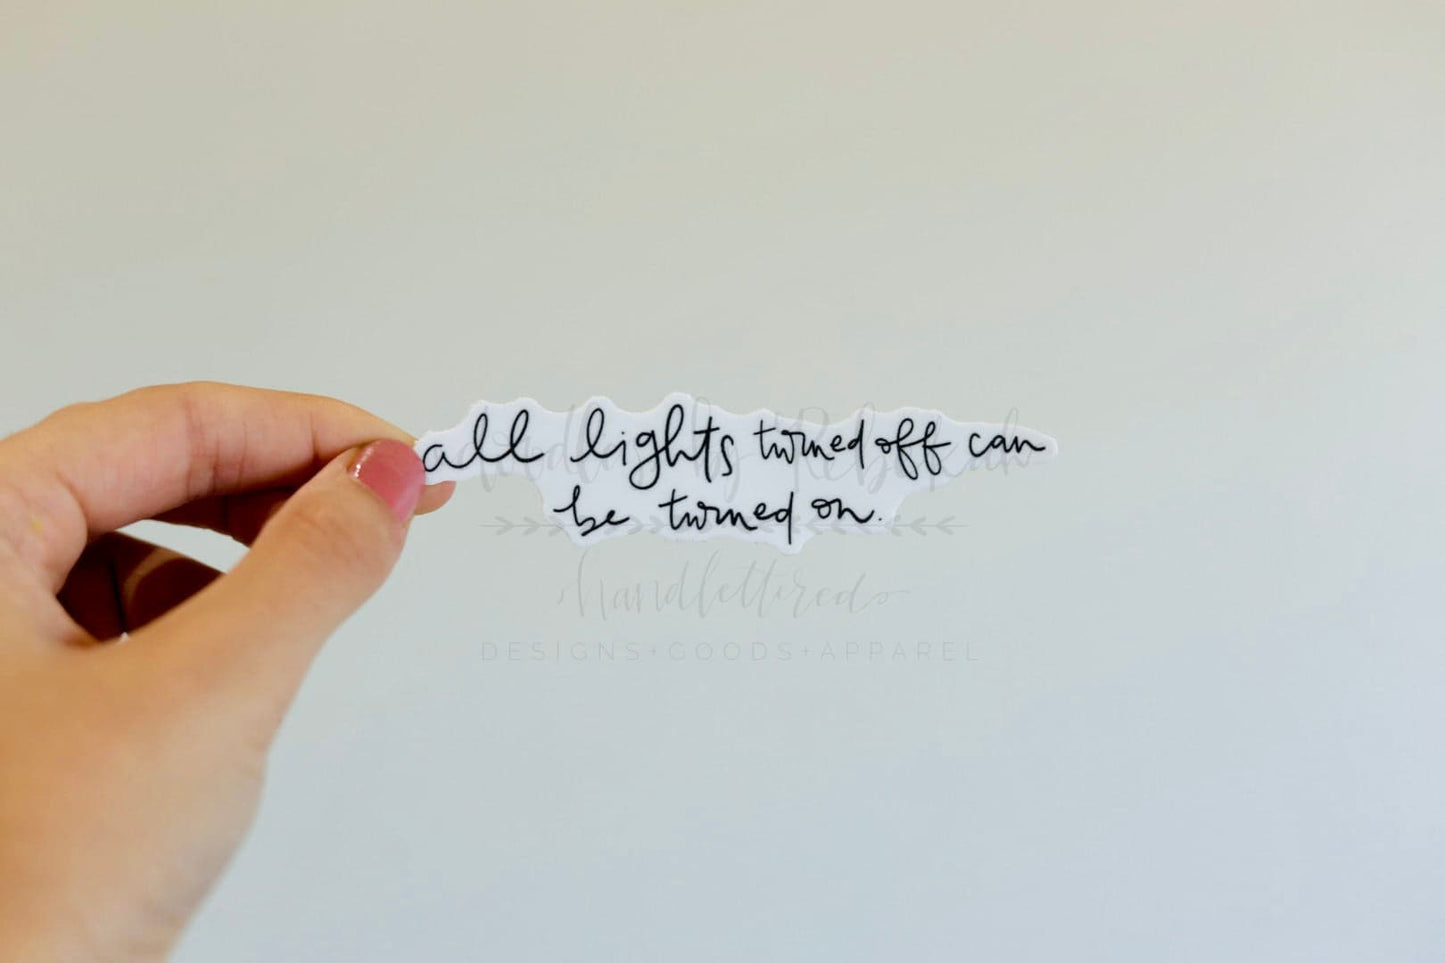 all lights turned off can
be turned on.
handlettired
DESIGNS+GOODS+APPAREL